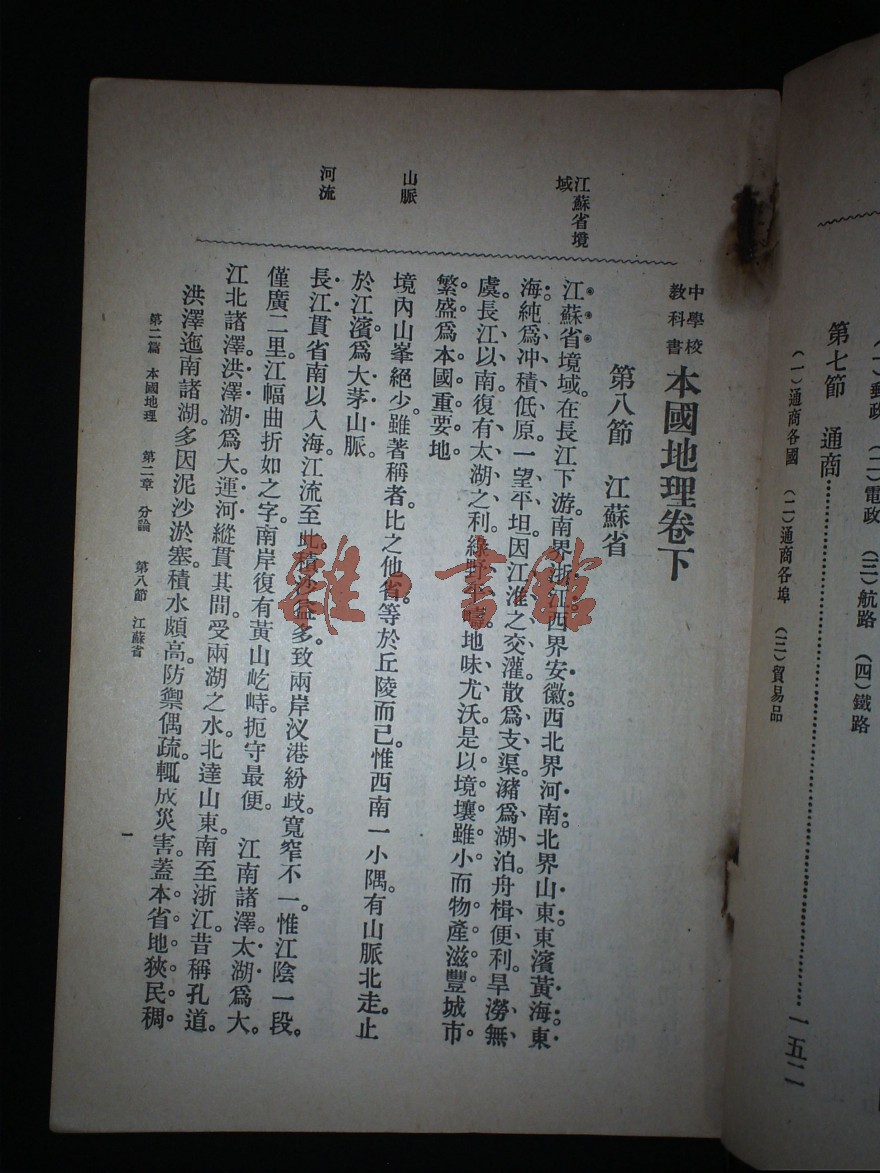 (一)郵政 (二)電政 (三)航路 (四)鐵路
第七節 通商 一五二
(一)通商各國 (二)通商各埠 (三)貿易品
中學校
教科書
本國地理卷下
第八節 江蘇省
江蘇省境
域
江蘇省境域。在長江下游。南界浙江。西界安徽。西北界河南。北界山東。東濱黃海東
海。純爲冲積低原。一望平坦。因江淮之交灌。散爲支渠。瀦爲湖泊。舟楫便利。旱澇無
虞。長江以南。復有太湖之利。綠野平疇。地味尤沃。是以境壤雖小。而物產滋豐。城市
繁盛。爲本國重要地
山脈
境內山峯絕少。雖著稱者。比之他省。等於丘陵而已。惟西南一小隅。有山脈北走。止
於江濱。爲大茅山脈。
河流
長江貫省南以入海。江流至此。積沙益多。致兩岸汊港紛歧。寬窄不一。惟江陰一段。
僅廣二里。江幅曲折如之字。南岸復有黃山屹峙。扼守最便。 江南諸澤。太湖爲大。
江北諸澤。洪澤湖爲大。運河縱貫其間。受兩湖之水。北達山東。南至浙江。昔稱孔道。
洪澤迤南諸湖。多因泥沙淤塞。積水頗高。防禦偶疏。輒成災害。蓋本省地狹民稠。
第二篇 本國地理 第二章 分論 第八節 江蘇省
一